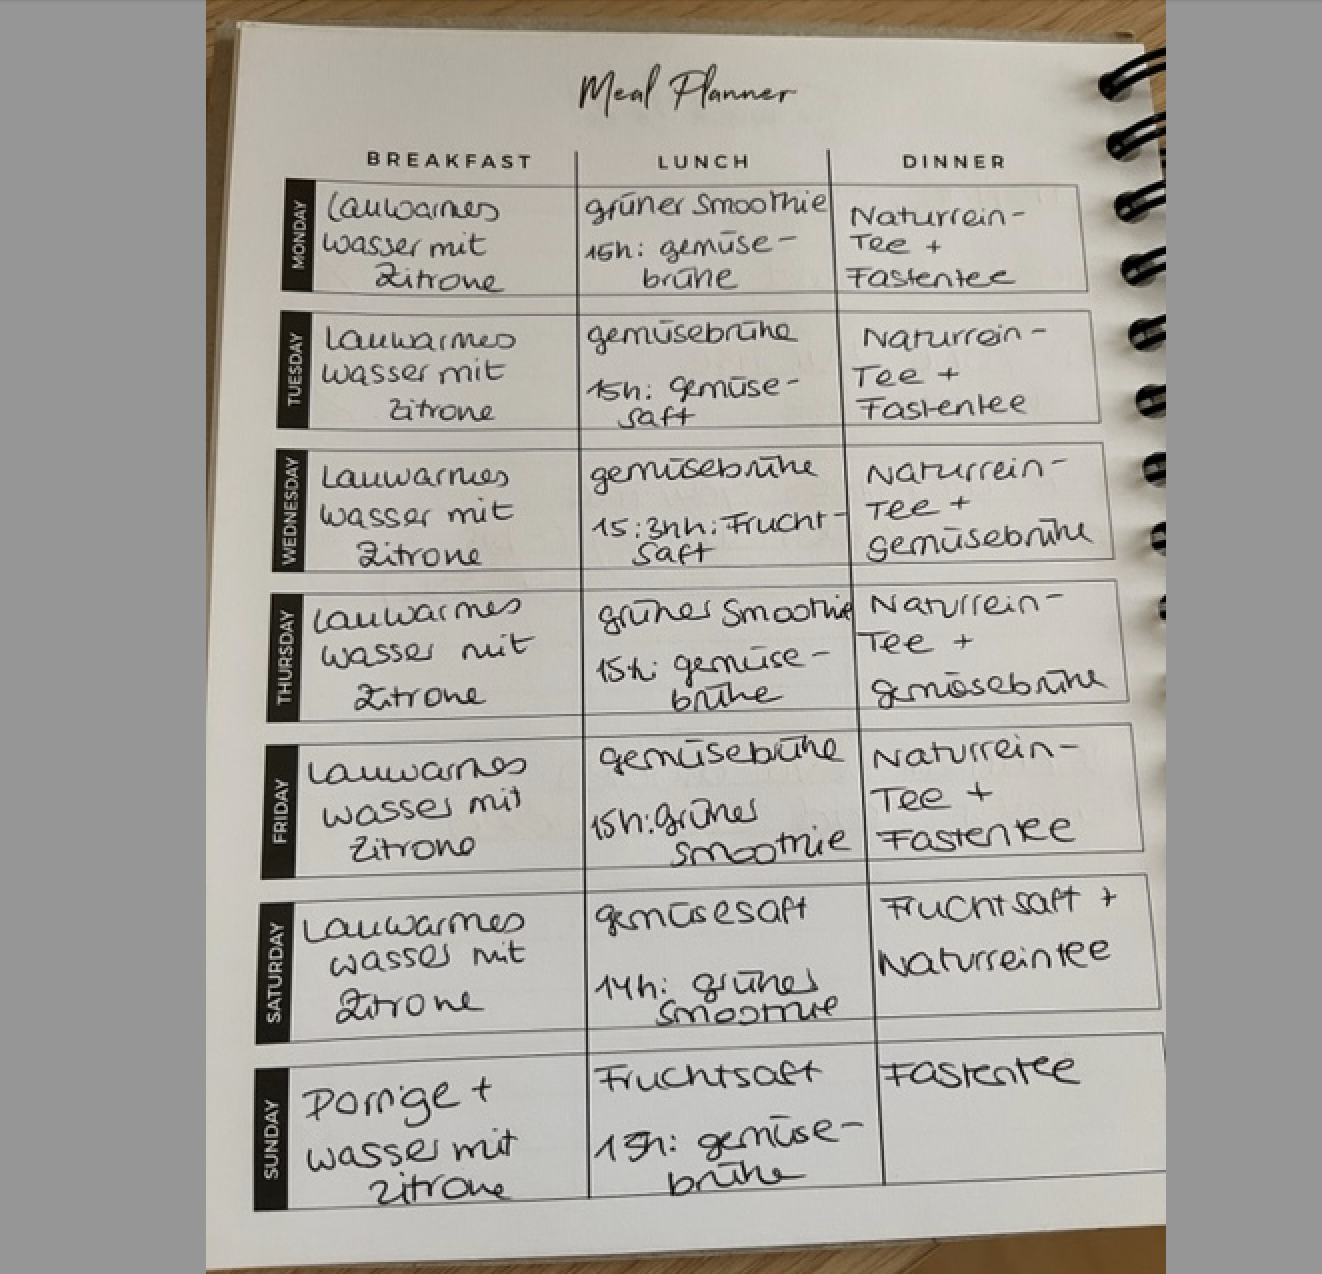 Meal Planner
BREAKFAST LUNCH DINNER
MONDAY
Lauwarmes
wasser mit
Zitrone
grüner Smoothie
15h: gemüse-
brühe
Naturrein-
Tee +
Fastentee
TUESDAY
Lauwarmes
wasser mit
zitrone
gemüsebrühe
15h: gemüse-
saft
Naturrein-
Tee +
Fastentee
WEDNESDAY
Lauwarmes
wasser mit
Zitrone
gemüsebrühe
15:3hh: Frucht-
saft
Naturrein-
Tee +
gemüsebrühe
THURSDAY
Lauwarmes
wasser mit
Zitrone
grüner Smoothie
15h: gemüse-
brühe
Naturrein-
Tee +
gemüsebrühe
FRIDAY
Lauwarmes
wasser mit
Zitrone
gemüsebrühe
15h: grüner
smoothie
Naturrein-
Tee +
Fastentee
SATURDAY
Lauwarmes
wasser mit
Zitrone
gemüsesaft
14h: grüner
smoothie
Fruchtsaft +
Naturreintee
SUNDAY
Porrige +
wasser mit
zitrone
Fruchtsaft
15h: gemüse-
brühe
Fastentee